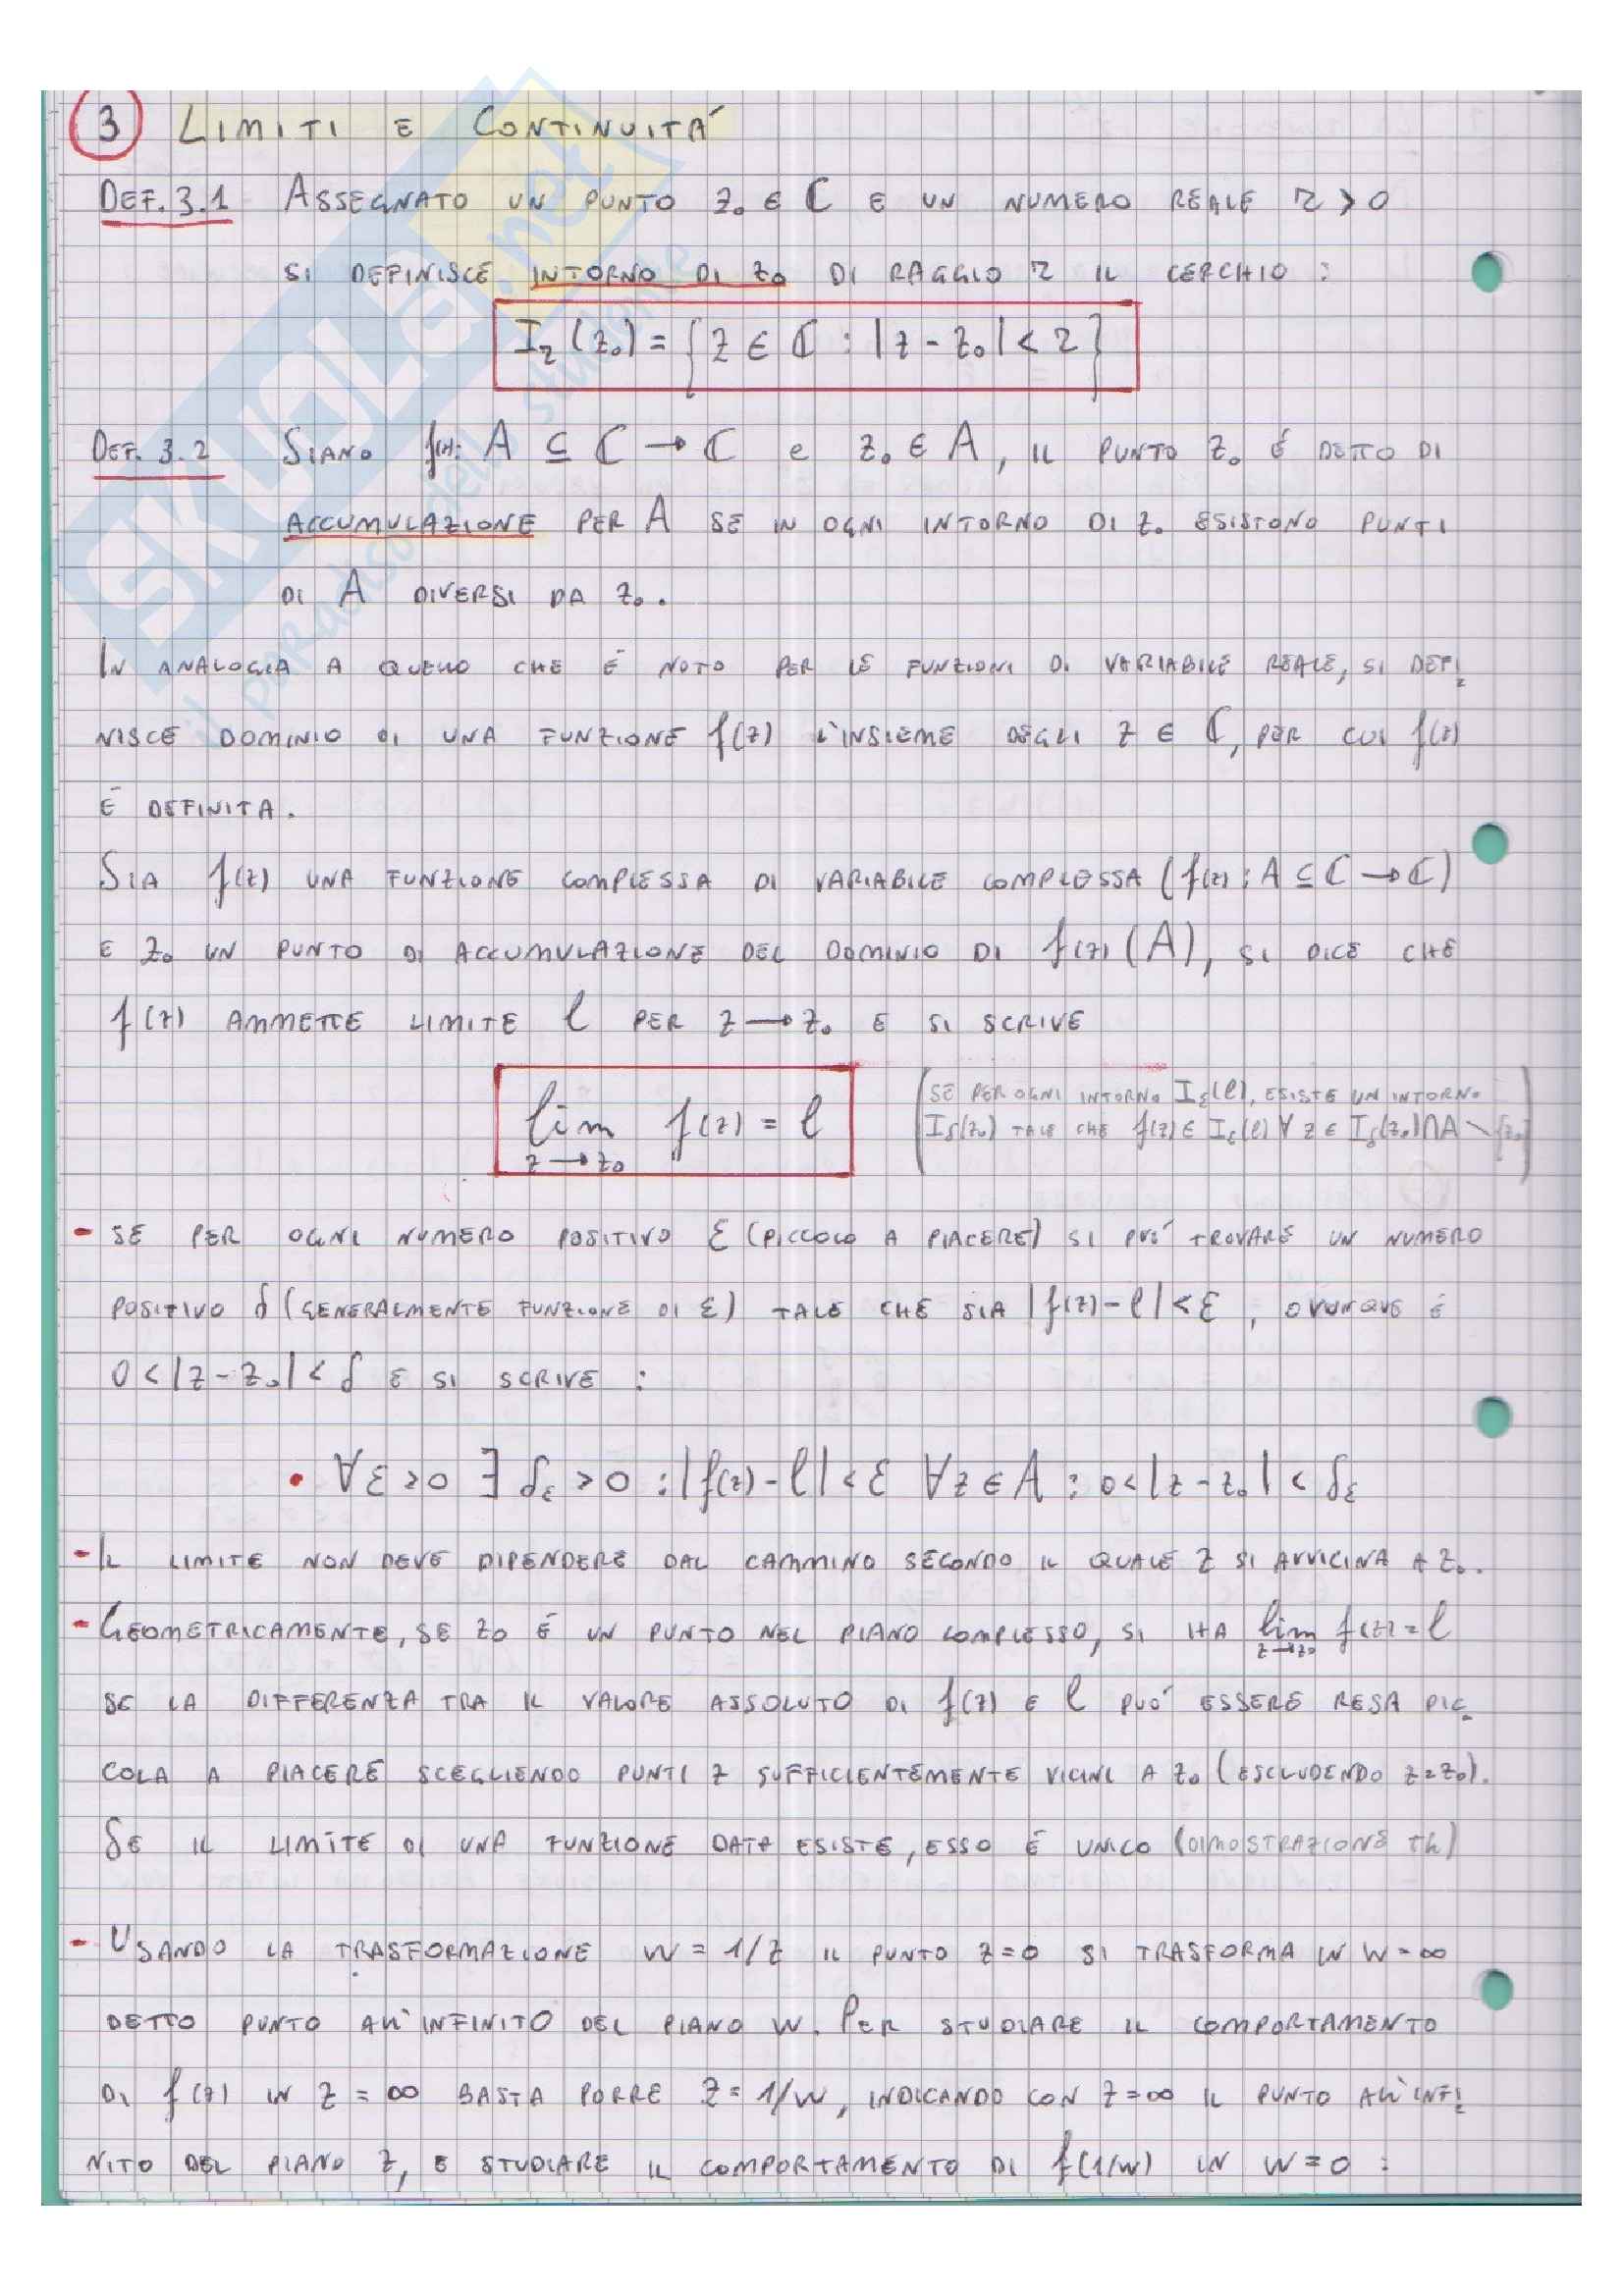 3 LIMITI E CONTINUITÁ
DEF. 3.1 ASSEGNATO UN PUNTO z₀ ∈ ℂ E UN NUMERO REALE r > 0
SI DEFINISCE INTORNO DI z₀ DI RAGGIO r IL CERCHIO :
Iᵣ(z₀) = {z ∈ ℂ : |z - z₀| < r}
DEF. 3.2 SIANO f(z): A ⊆ ℂ → ℂ e z₀ ∈ A, IL PUNTO z₀ É DETTO DI
ACCUMULAZIONE PER A SE IN OGNI INTORNO DI z₀ ESISTONO PUNTI
DI A DIVERSI DA z₀.
IN ANALOGIA A QUELLO CHE É NOTO PER LE FUNZIONI DI VARIABILE REALE, SI DEFI
NISCE DOMINIO DI UNA FUNZIONE f(z) L'INSIEME DEGLI z ∈ ℂ, PER CUI f(z)
É DEFINITA.
SIA f(z) UNA FUNZIONE COMPLESSA DI VARIABILE COMPLESSA (f(z) : A ⊆ ℂ → ℂ)
E z₀ UN PUNTO DI ACCUMULAZIONE DEL DOMINIO DI f(z) (A), SI DICE CHE
f(z) AMMETTE LIMITE ℓ PER z → z₀ E SI SCRIVE
lim f(z) = ℓ
z → z₀
(SE PER OGNI INTORNO I_ε(ℓ), ESISTE UN INTORNO
I_δ(z₀) TALE CHE f(z) ∈ I_ε(ℓ) ∀ z ∈ I_δ(z₀) ∩ A \ {z₀})
- SE PER OGNI NUMERO POSITIVO ε (PICCOLO A PIACERE) SI PUÓ TROVARE UN NUMERO
POSITIVO δ (GENERALMENTE FUNZIONE DI ε) TALE CHE SIA |f(z) - ℓ| < ε, OVUNQUE É
0 < |z - z₀| < δ E SI SCRIVE :
• ∀ε > 0 ∃ δ_ε > 0 : |f(z) - ℓ| < ε ∀z ∈ A : 0 < |z - z₀| < δ_ε
- IL LIMITE NON DEVE DIPENDERE DAL CAMMINO SECONDO IL QUALE z SI AVVICINA A z₀.
- GEOMETRICAMENTE, SE z₀ É UN PUNTO NEL PIANO COMPLESSO, SI HA lim z→z₀ f(z) = ℓ
SE LA DIFFERENZA TRA IL VALORE ASSOLUTO DI f(z) E ℓ PUÓ ESSERE RESA PIC
COLA A PIACERE SCEGLIENDO PUNTI z SUFFICIENTEMENTE VICINI A z₀ (ESCLUDENDO z=z₀).
SE IL LIMITE DI UNA FUNZIONE DATA ESISTE, ESSO É UNICO (DIMOSTRAZIONE th)
- USANDO LA TRASFORMAZIONE W = 1/z IL PUNTO z=0 SI TRASFORMA IN W = ∞
DETTO PUNTO ALL'INFINITO DEL PIANO W. PER STUDIARE IL COMPORTAMENTO
DI f(z) IN z = ∞ BASTA PORRE z = 1/W, INDICANDO CON z=∞ IL PUNTO ALL'INFI
NITO DEL PIANO z, E STUDIARE IL COMPORTAMENTO DI f(1/W) IN W=0 :
SKUOLA.net
il paradiso dello studente